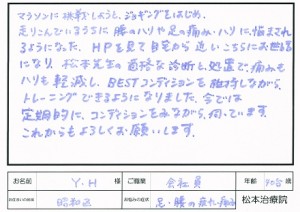 マラソンに挑戦しようと、ジョギングをはじめ、
走りこんでいるうちに腰のハリや足の痛み・ハリに、悩まされ
るようになった、HPを見て自宅から近いこちらにお世話
になり、松本先生の的確な診断と、処置で、痛みも
ハリも軽減し、BESTコンディションを維持しながら、
トレーニングできるようになりました。今では
定期的に、コンディションをみながら、伺っています。
これからもよろしくお願いします。
お名前 Y・H 様 ご職業 会社員 年齢 40台 歳
ご住所 昭和区 お悩みの症状 足・腰の疲れ・痛み 松本治療院